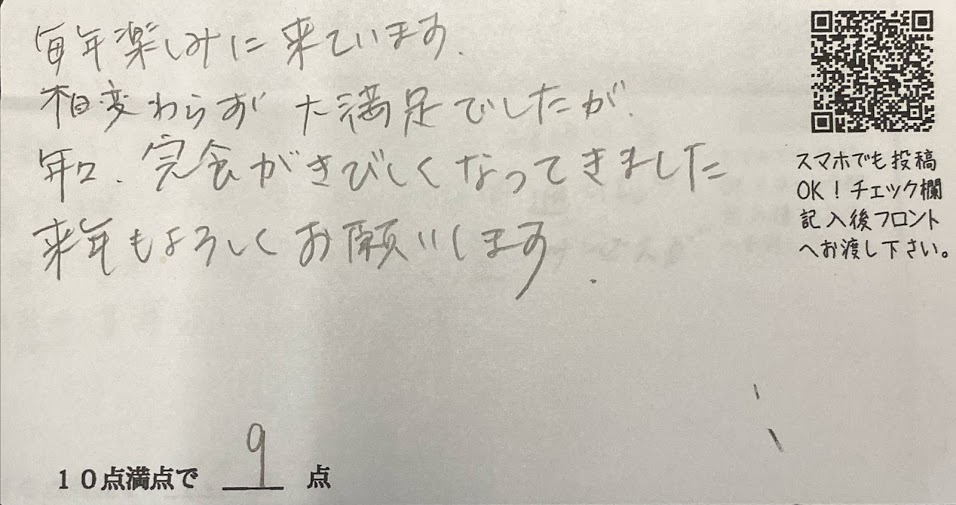 毎年楽しみに来ています.
相変わらず大満足でしたが.
年々、完食がきびしくなってきました
来年もよろしくお願いします.
スマホでも投稿
OK!チェック欄
記入後フロント
へお渡し下さい。
10点満点で 9 点